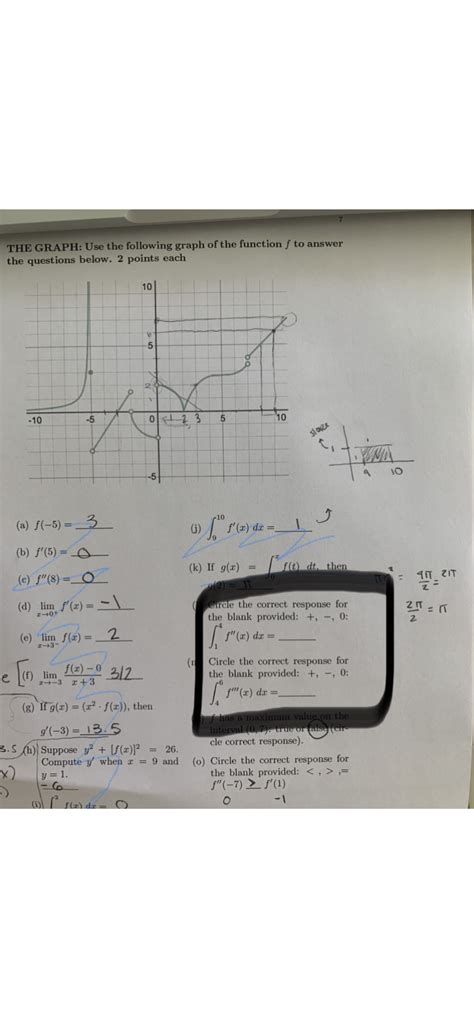 7
THE GRAPH: Use the following graph of the function f to answer
the questions below. 2 points each
10
5
2
-10 -5 0 1 2 3 5 10
-5
1
9 10
(a) f(−5) = 3
(b) f′(5) = 0
(c) f″(8) = 0
(d) lim x→0⁺ f′(x) = -1
(e) lim x→3⁻ f(x) = 2
(f) lim x→−3 f(x) − 0 / x + 3 = 3/2
(g) If g(x) = (x² · f(x)), then
g′(−3) = 13.5
(h) Suppose y² + [f(x)]² = 26.
Compute y′ when x = 9 and
y = 1.
-6
(i) f(x) dx = 0
(j) ∫₉¹⁰ f′(x) dx = 1
(k) If g(x) = f(t) dt, then
= 4π/2 = 2π
2π/2 = π
Circle the correct response for
the blank provided: +, −, 0:
∫₁⁴ f″(x) dx =
Circle the correct response for
the blank provided: +, −, 0:
∫₄⁶ f‴(x) dx =
f has a maximum value on the
interval (0,7): true or false (cir-
cle correct response).
(o) Circle the correct response for
the blank provided: <, >, =
f″(−7) > f′(1)
0 -1